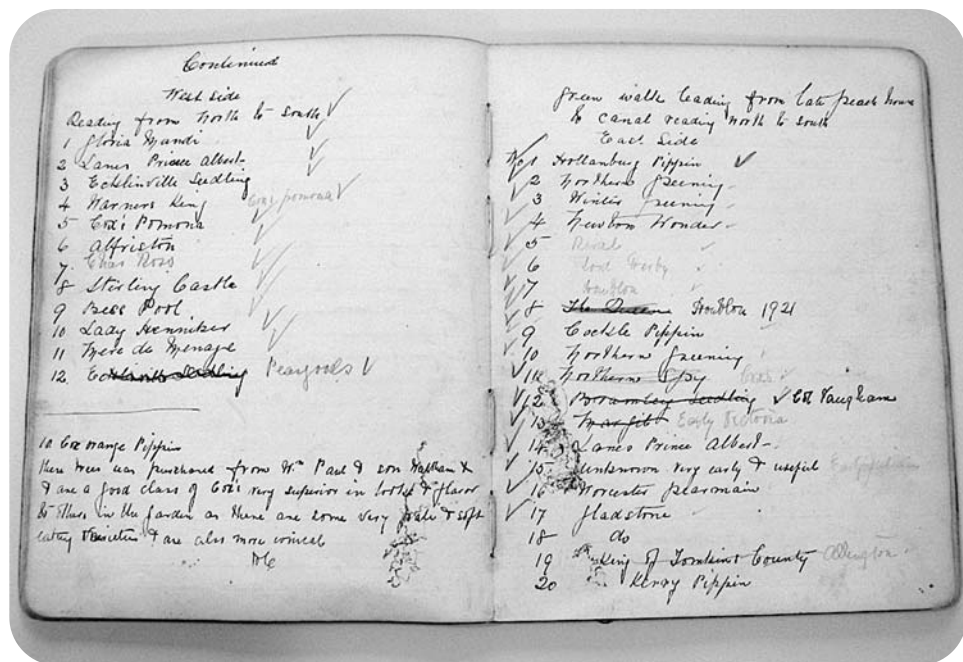 Continued
West Side
Reading from North to South
1 Gloria Mundi
2 Lanes Prince Albert
3 Ecklinville Seedling
4 Warners King Cox's Pomona
5 Cox's Pomona
6 Alfriston
7. Chas Ross
8 Stirling Castle
9 Bess Pool
10 Lady Henniker
11 Mere de Menage
12. Ecklinville Seedling Peasgoods
10 Cox Orange Pippins
these trees was purchased from Wm Paul & Son Waltham X
& are a good class of Cox's very superior in looks & flavor
to others in the garden as there are some very & soft
eating varieties & are also more conical
Green walk leading from late peach house
to canal reading North to South
East Side
No 1 Hollanbury Pippin
2 Northern Greening
3 Winter Greening
4 Newton Wonder
5 Rival
6 Lord Derby
7 Houblon
8 The Queen Houblon 1921
9 Cockle Pippin
10 Northern Greening
11 Northern Spy Cox's
12 Bramley Seedling Col Vaughan
13 Margil Early Victoria
14 Lanes Prince Albert
15 unknown very early & useful
16 Worcester Pearmain
17 Gladstone
18 do
19 King of Tomkins County Allington
20 Kerry Pippin